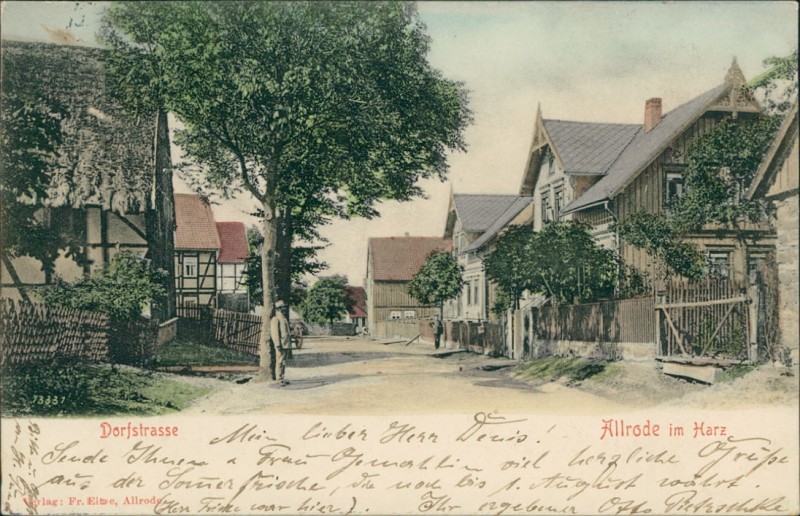 13331
Dorfstrasse
Allrode im Harz
Mein lieber Herr Denis!
Sende Ihnen u Frau Gemahlin viel herzliche Grüße
aus der Sommerfrische, die noch bis 1. August währt.
Verlag: Fr. Eitze, Allrode
(Herr Fricke war hier). Ihr ergebener Otto Pietzschke